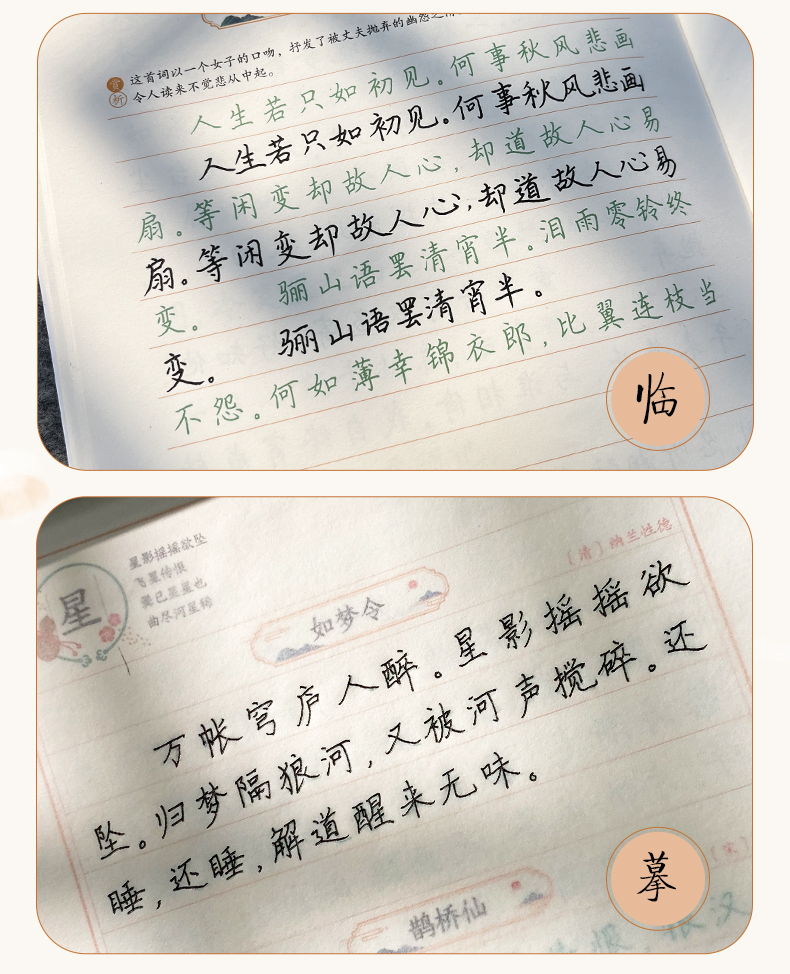 赏析
这首词以一个女子的口吻，抒发了被丈夫抛弃的幽怨之情
令人读来不觉悲从中起。
人生若只如初见。何事秋风悲画
人生若只如初见。何事秋风悲画
扇。等闲变却故人心，却道故人心易
扇。等闲变却故人心，却道故人心易
变。 骊山语罢清宵半。泪雨零铃终
变。 骊山语罢清宵半。
不怨。何如薄幸锦衣郎，比翼连枝当
临
星
星影摇摇欲坠
飞星传恨
曲尽河星稀
（清）纳兰性德
如梦令
万帐穹庐人醉。星影摇摇欲
坠。归梦隔狼河，又被河声搅碎。还
睡，还睡，解道醒来无味。
摹
鹊桥仙
（宋）